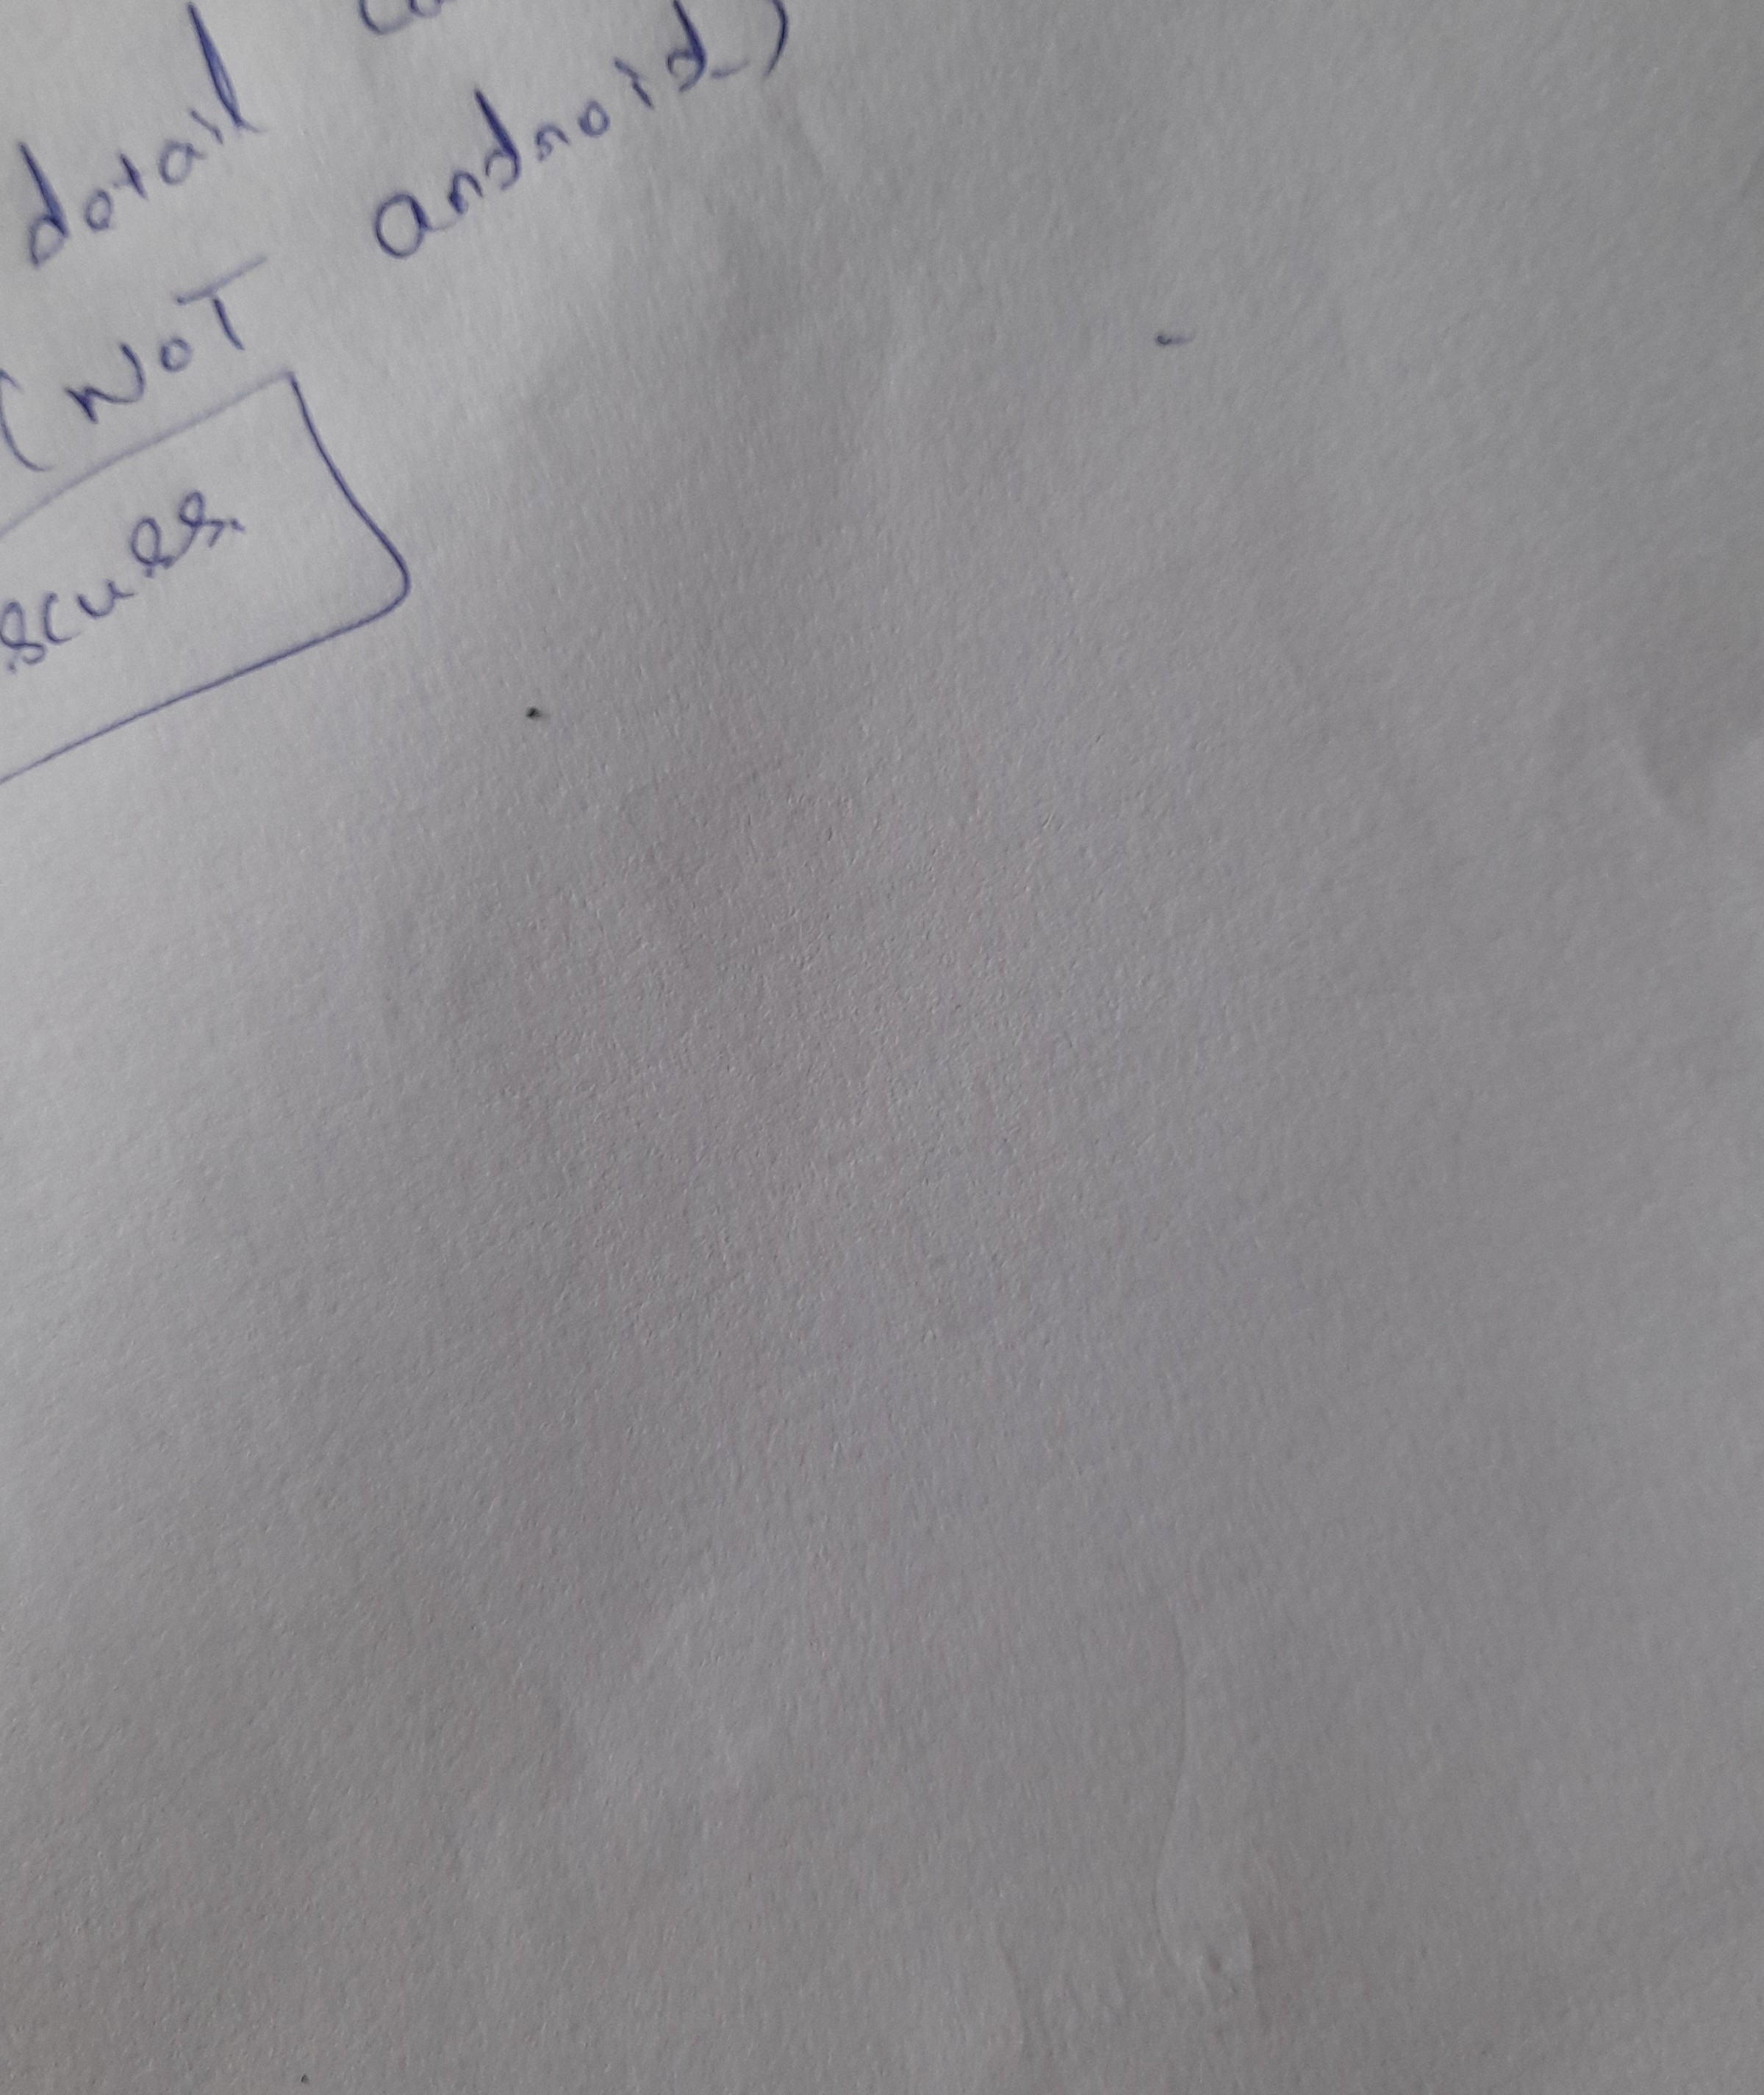 detail
(NOT android)
scuss